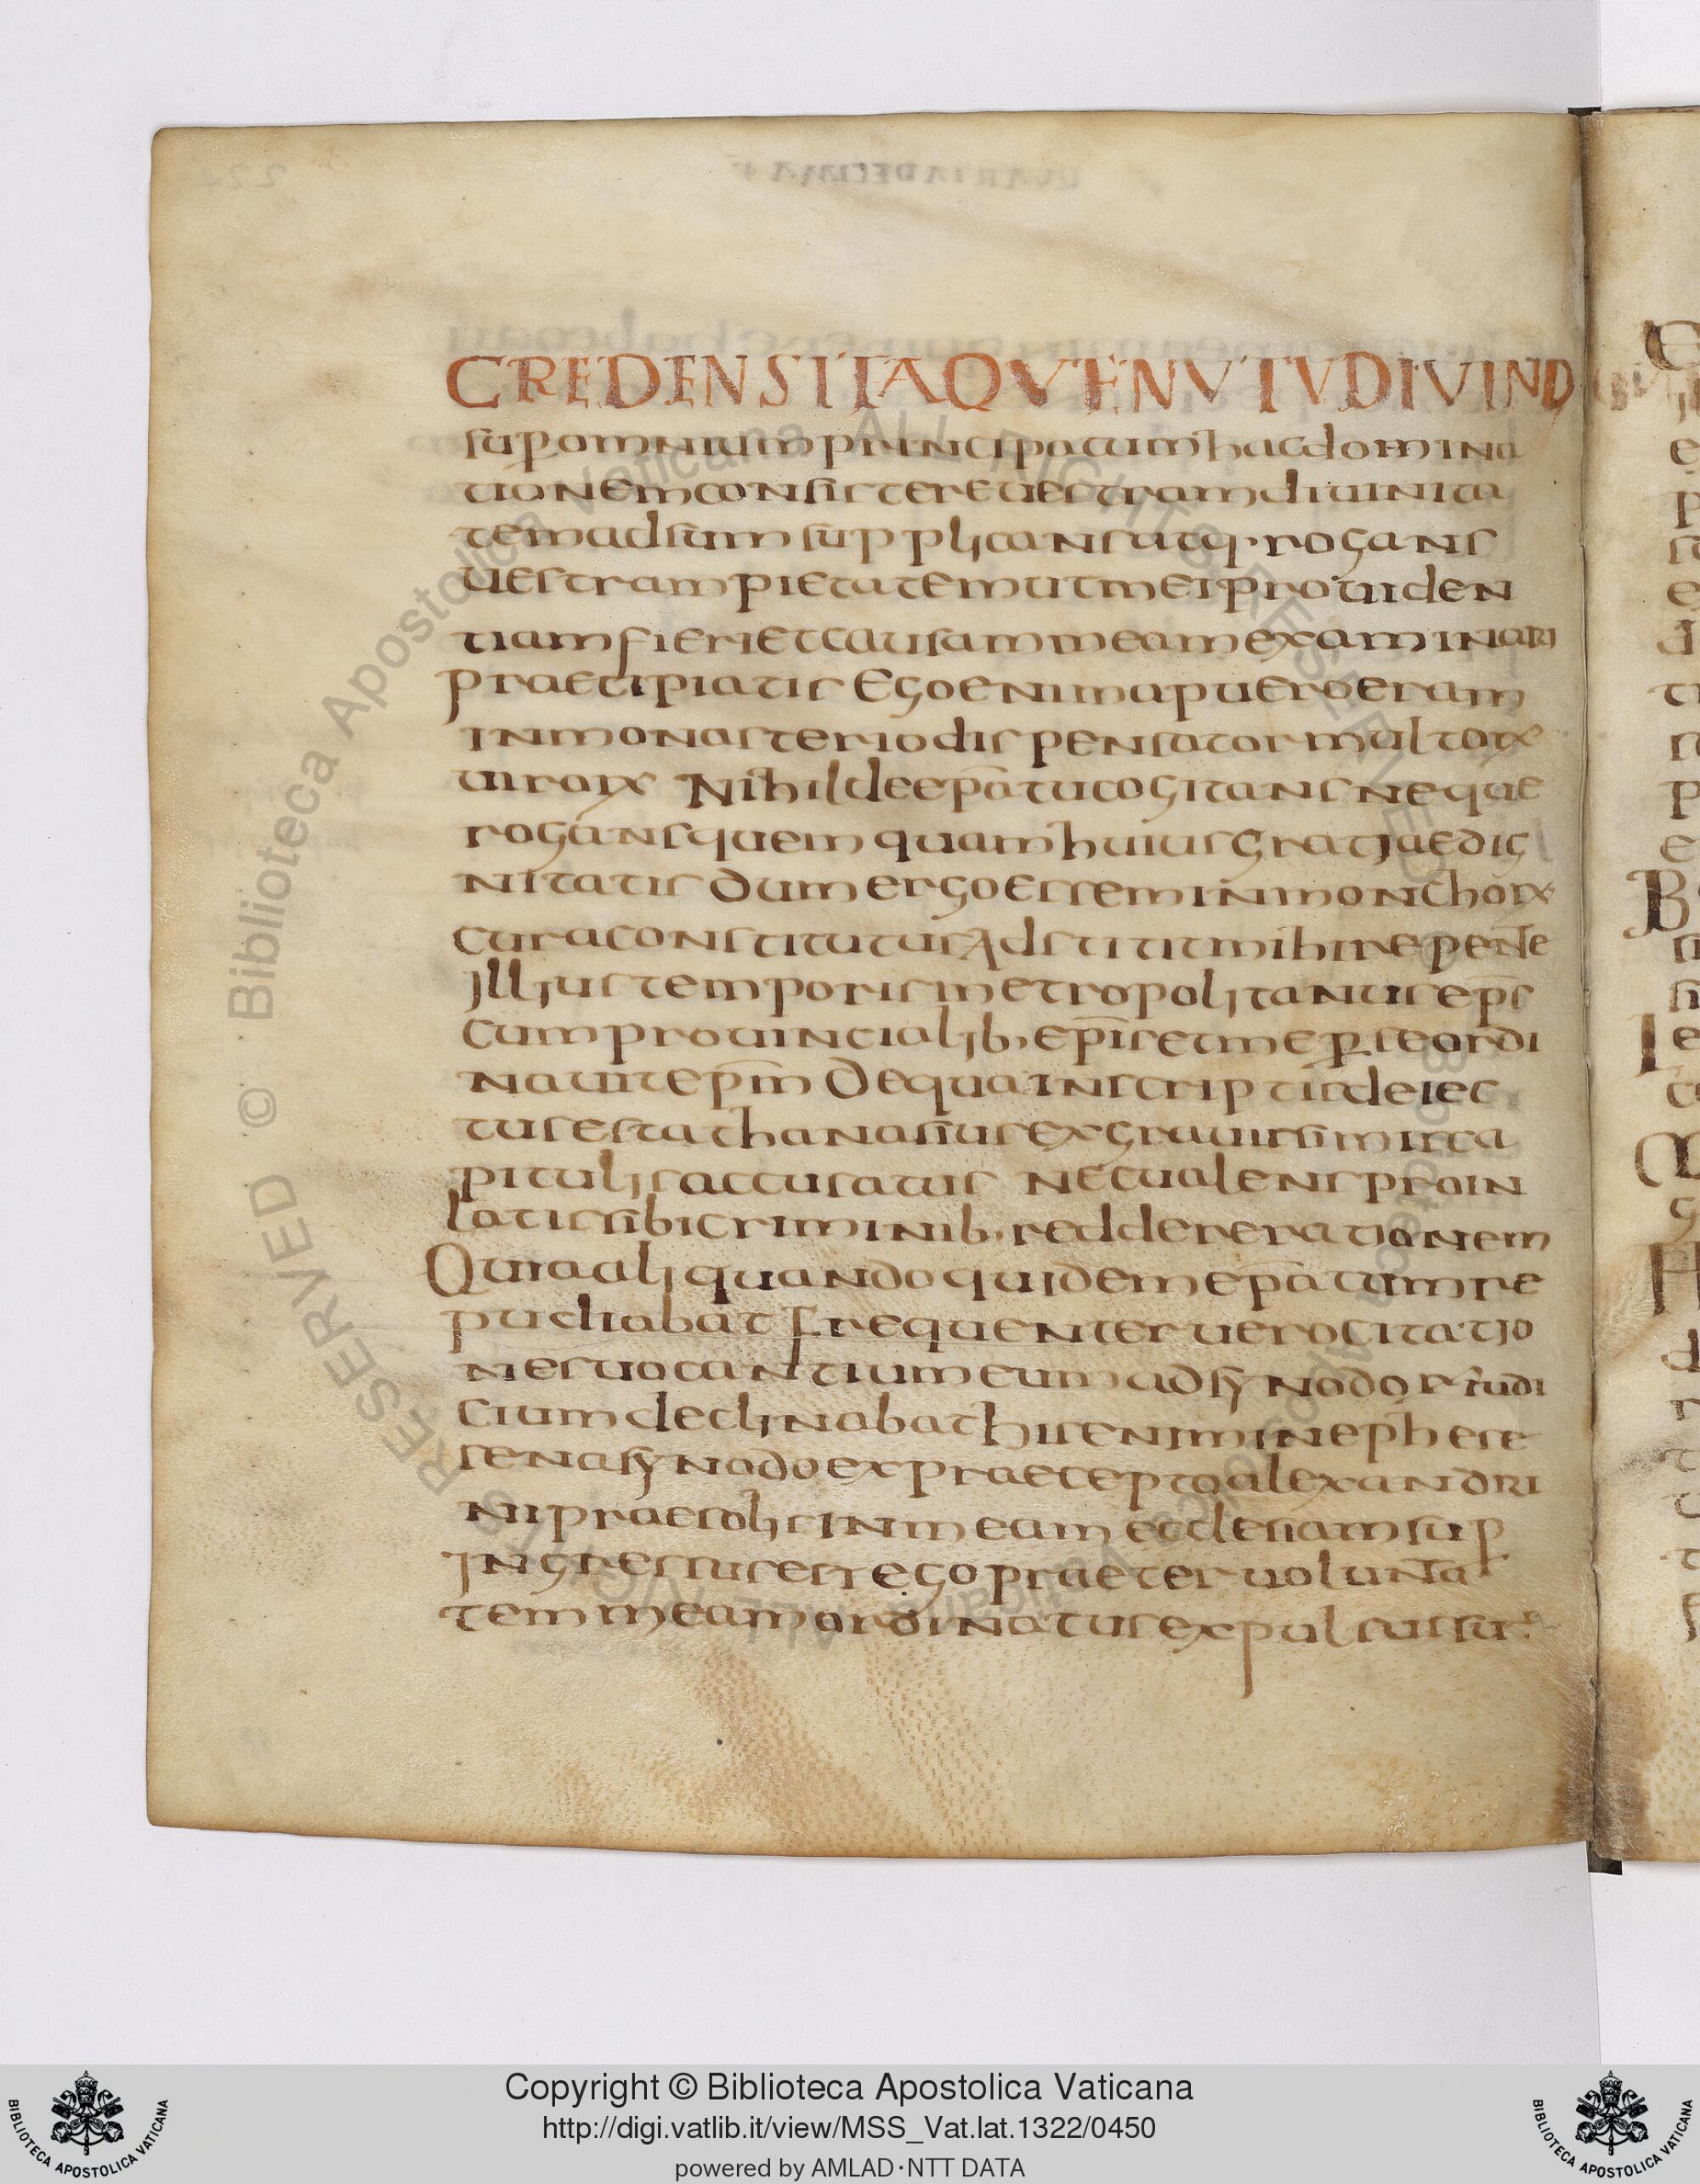 CREDENSITAQVENVTVDIVINO
sup omnium principatum hac domina
tionem consistere uestram diuinita
tem adsum supplicans atq· rogans
uestram pietatem ut mei prouiden
tiam fieri et causam meam examinari
praecipiatis Ego enim a puero eram
in monasterio dispensator multorꝝ
uirorꝝ Nihil de ep̄atu cogitans neque
rogans quemquam huius gratiae dig
nitatis Dum ergo essem in monchorꝝ
cura constitutus Adstitit mihi repente
Illius temporis metropolitanus ep̄s
cum prouincialib, ep̄is et me ꝑ se ordi
nauit ep̄m De qua inscriptis deiec
tus est athanasius ex grauissimis ca
pitulis accusatus nec ualens pro in
latis sibi criminib, reddere rationem
Quia aliquando quidem ep̄atum re
pudiabat frequenter uero citatio
nes uocantium eum ad synodos iudi
cium declinabat his enim in ephese
sena synodo ex praecepto alexandri
ni praesolis in meam ecclesiam sup
Ingressus est ego praeter uolunta
tem meam ordinatus expulsus su
Copyright © Biblioteca Apostolica Vaticana
http://digi.vatlib.it/view/MSS_Vat.lat.1322/0450
powered by AMLAD·NTT DATA
BIBLIOTECA APOSTOLICA VATICANA
BIBLIOTECA APOSTOLICA VATICANA